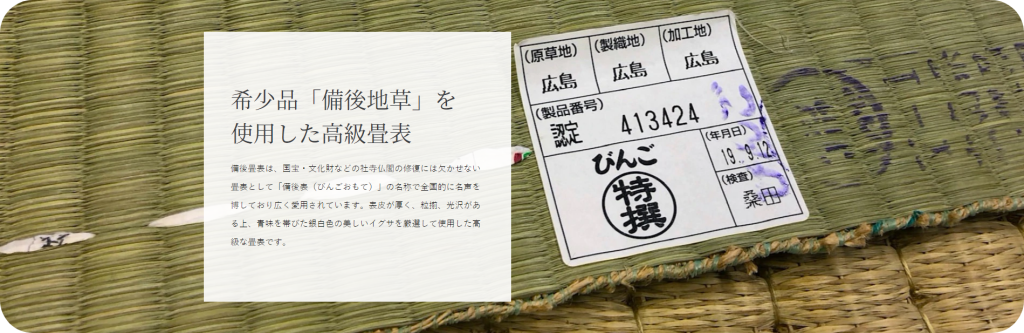 希少品「備後地草」を
使用した高級畳表
備後畳表は、国宝・文化財などの社寺仏閣の修復には欠かせない
畳表として「備後表（びんごおもて）」の名称で全国的に名声を
博しており広く愛用されています。表皮が厚く、粒揃、光沢があ
る上、青味を帯びた銀白色の美しいイグサを厳選して使用した高
級な畳表です。
(原草地) (製織地) (加工地)
広島 広島 広島
(製品番号)
認定 413424
(年月日)
19.9.12
びんご
特撰
(検査)
桑田